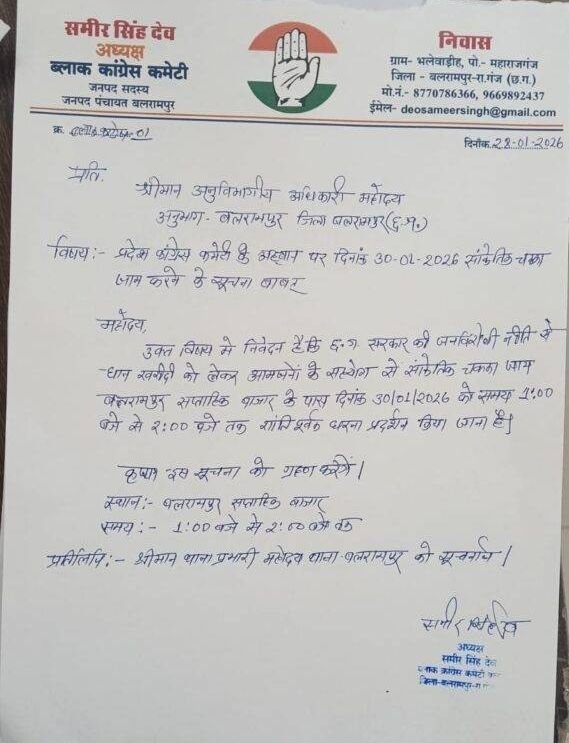 समीर सिंह देव
अध्यक्ष
ब्लाक कांग्रेस कमेटी
जनपद सदस्य
जनपद पंचायत बलरामपुर
निवास
ग्राम- भलेवाडीह, पो.- महाराजगंज
जिला - बलरामपुर-रा.गंज (छ.ग.)
मो.नं.- 8770786366, 9669892437
ईमेल- deosameersingh@gmail.com
क्र. 01
दिनाँक 28-01-2026
प्रति.
श्रीमान अनुविभागीय अधिकारी महोदय
अनुभाग- बलरामपुर जिला बलरामपुर (छ.ग.)
विषय:- प्रदेश कांग्रेस कमेटी के आह्वान पर दिनांक 30-01-2026 सांकेतिक चक्का
जाम करने के सूचना बाबत्
महोदय,
उक्त विषय मे निवेदन है कि छ.ग सरकार की जनविरोधी नीति व
धान खरीदी को लेकर आमजनों के सहयोग से सांकेतिक चक्का जाम
बलरामपुर सप्ताहिक बाजार के पास दिनांक 30/01/2026 को समय 1:00
बजे से 2:00 बजे तक शांतिपूर्वक धरना प्रदर्शन किया जाना है।
कृपया इस सूचना को ग्रहण करेंगे।
स्थान:- बलरामपुर सप्ताहिक बाजार
समय:- 1:00 बजे से 2:00 बजे तक
प्रतिलिपि:- श्रीमान थाना प्रभारी महोदय थाना-बलरामपुर को सूचनार्थ।
समीर सिंह देव
अध्यक्ष
समीर सिंह देव
ब्लाक कांग्रेस कमेटी
जिला-बलरामपुर-रा.